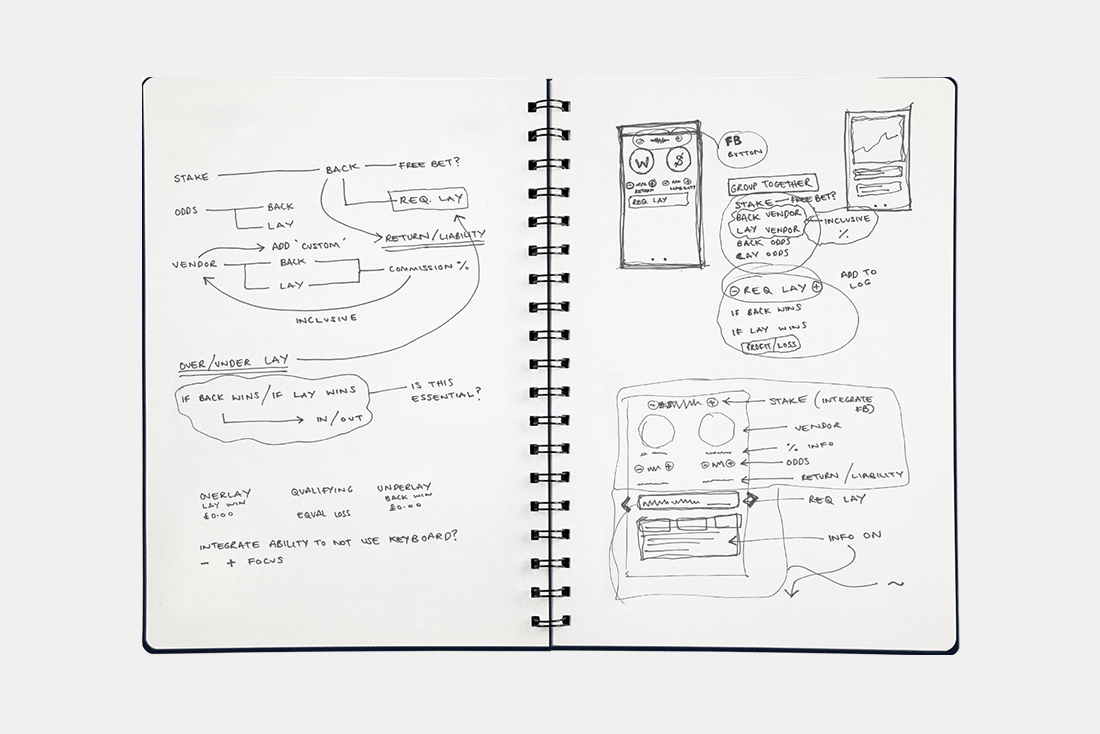 STAKE
BACK
FREE BET?
REQ. LAY
ODDS
BACK
LAY
RETURN/LIABILITY
ADD 'CUSTOM'
VENDOR
BACK
LAY
COMMISSION %
INCLUSIVE
OVER/UNDER LAY
IF BACK WINS/IF LAY WINS
IN/OUT
IS THIS
ESSENTIAL?
OVERLAY
LAY WIN
£0.00
QUALIFYING
EQUAL LOSS
UNDERLAY
BACK WIN
£0.00
INTEGRATE ABILITY TO NOT USE KEYBOARD?
- + FOCUS
W
$
RETURN
LIABILITY
REQ LAY
FB
BUTTON
GROUP TOGETHER
STAKE — FREE BET?
BACK VENDOR
LAY VENDOR
BACK ODDS
LAY ODDS
INCLUSIVE
%
- REQ LAY +
IF BACK WINS
IF LAY WINS
PROFIT/LOSS
ADD TO
LOG
STAKE (INTEGRATE
FB)
VENDOR
% INFO
ODDS
RETURN/LIABILITY
REQ LAY
INFO ON
~